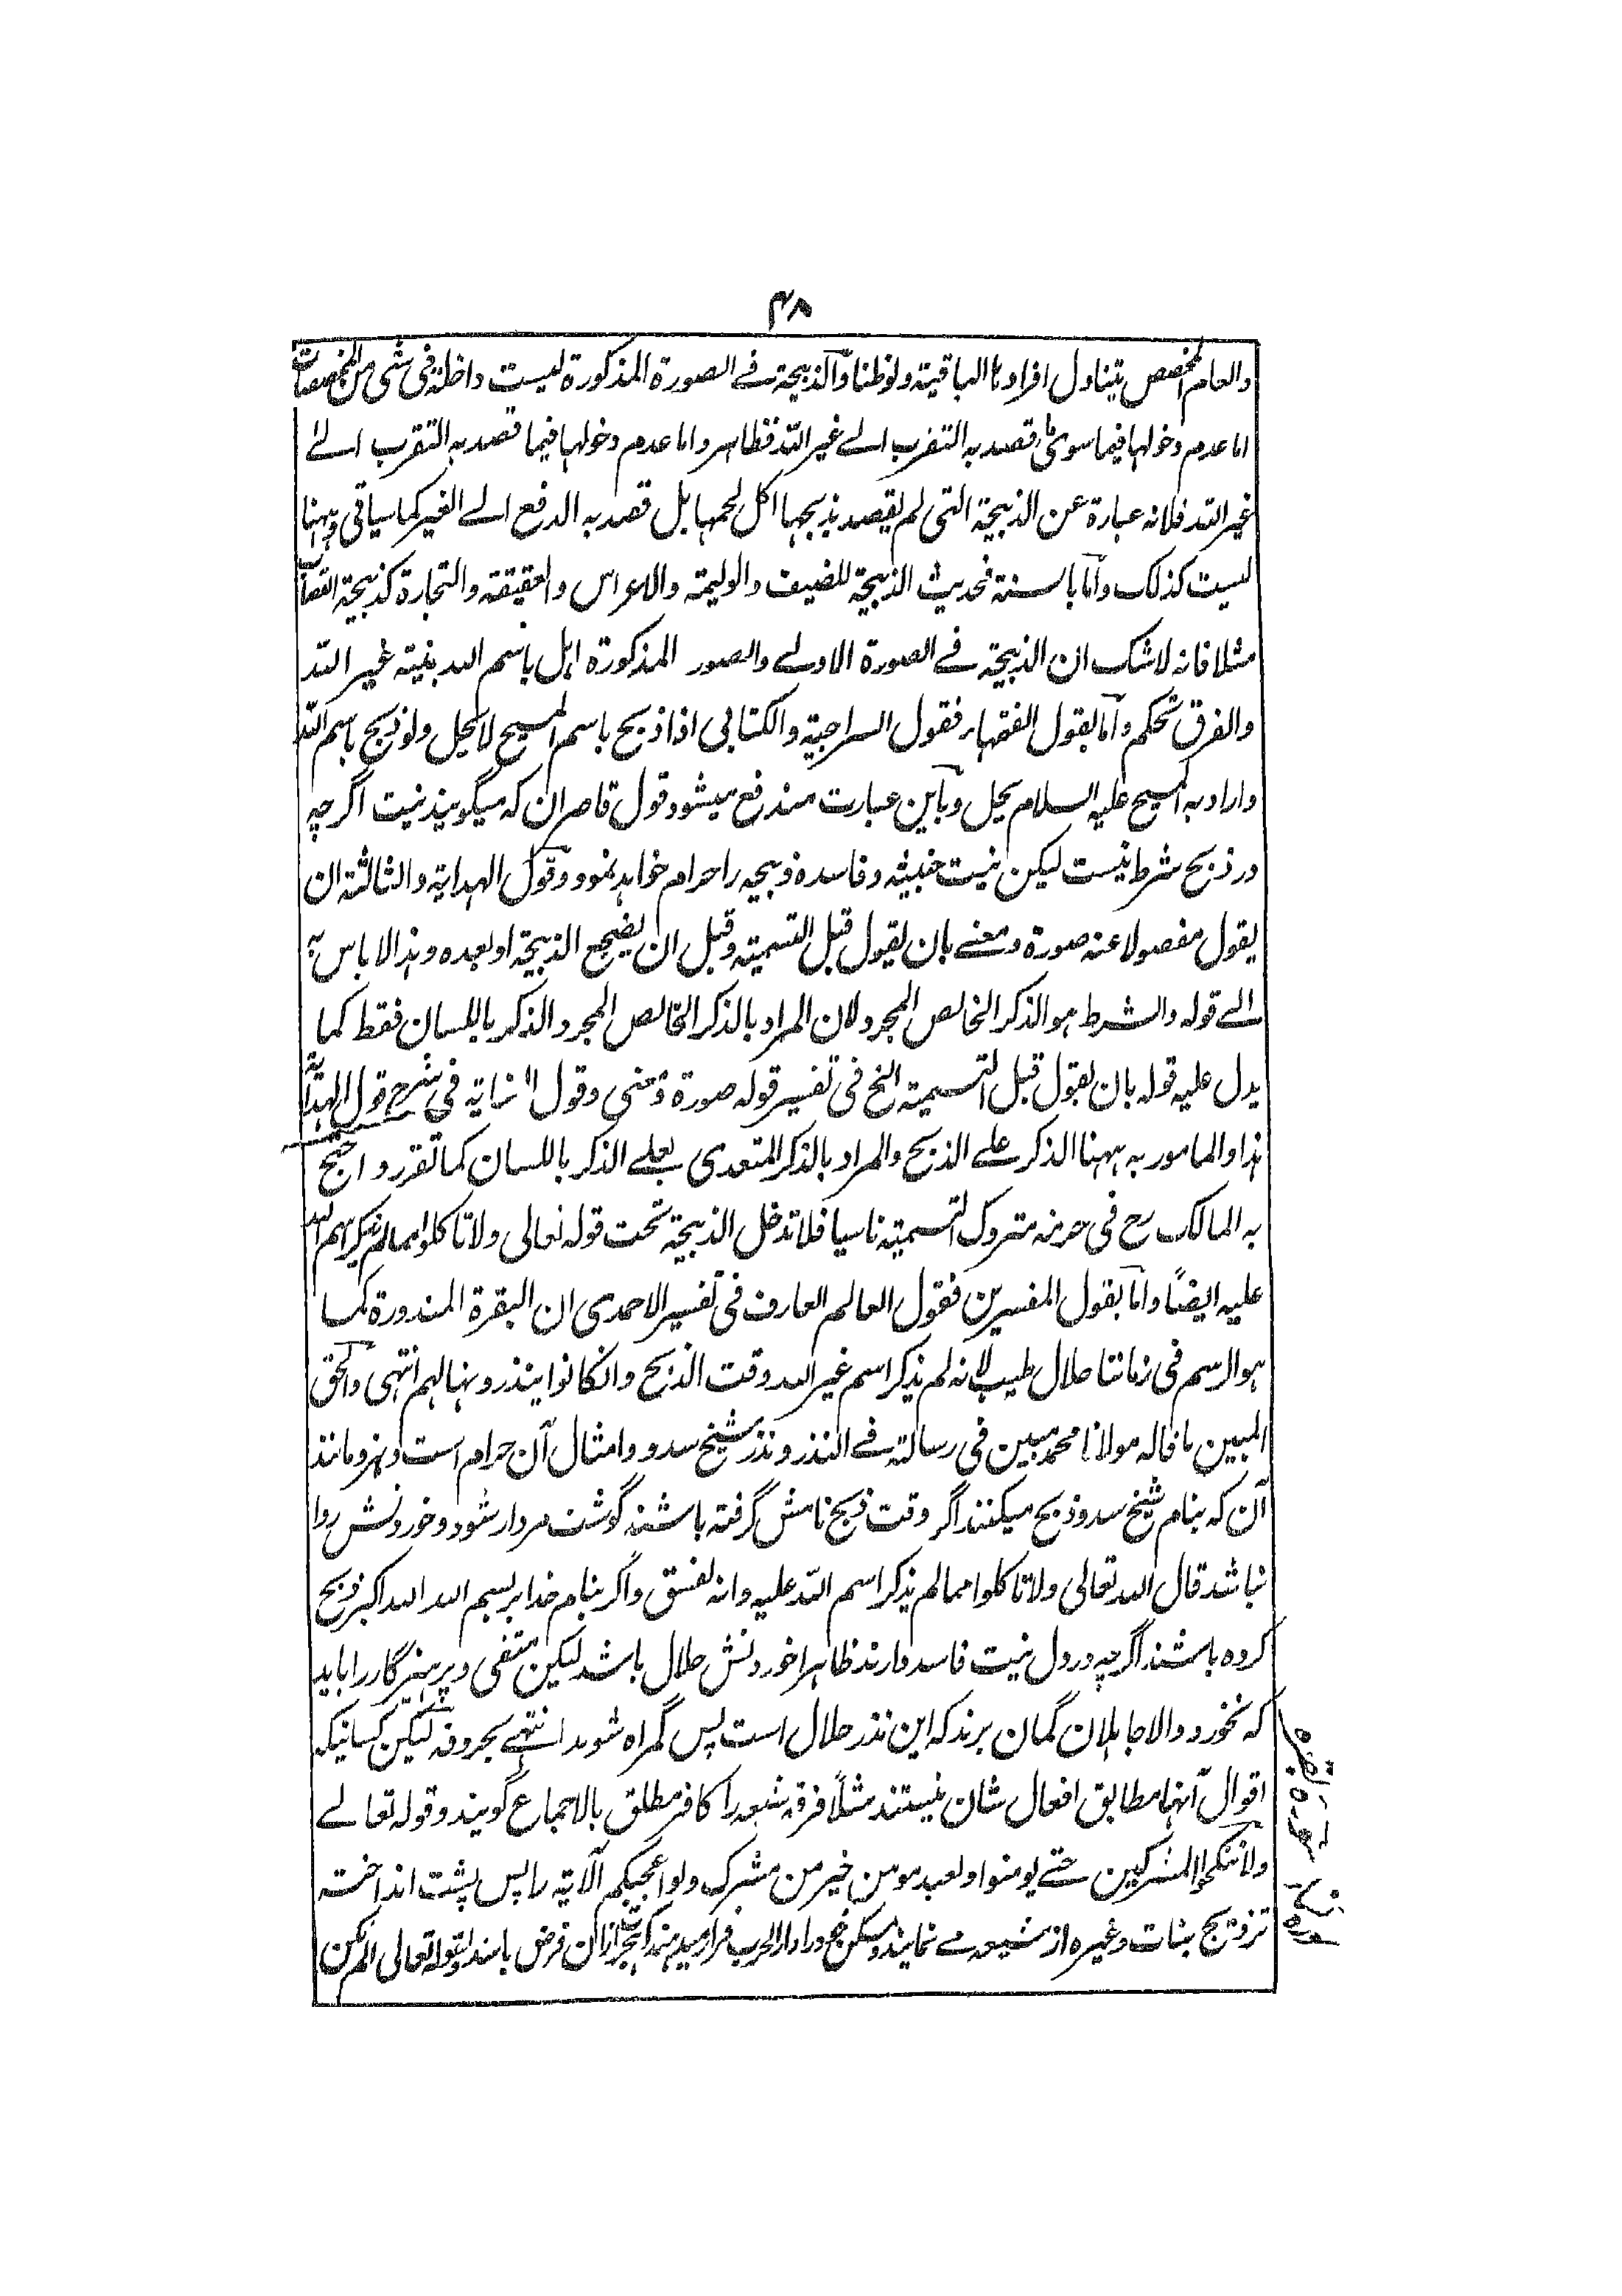 ۴۸
والعام المخصص یتناول افراده الباقیة ولو ظنا والذبیحة فے الصورة المذکورة لیست داخلة فی شی من المخصصات
اما عدم دخولها فیما سوی ما قصد به التقرب الے غیر الله فظاهر واما عدم دخولها فیما قصد به التقرب الے
غیر الله فلانه عبارة عن الذبیحة التی لم یقصد بذبحها اکل لحمها بل قصد به الدفع الے الغیر کما سیاتی وههنا
لیست کذلک واما بالسنة فحدیث الذبیحة للضیف والولیمة والاعراس والعقیقة والتجارة کذبیحة القصاب
مثلا فانه لا شک ان الذبیحة فے الصورة الاولے والصور المذکورة اهل باسم الله بنیة غیر الله
والفرق تحکم واما بقول الفقهاء فقول السراجیة والکتابی اذا ذبح باسم المسیح لا یحل ولو ذبح باسم الله
واراد به المسیح علیه السلام یحل وباین عبارت مندفع میشود قول قاصران که میگویند نیت اگرچه
در ذبح شرط نیست لیکن نیت خبیثه وفاسده ذبیحه را حرام خواهد نمود وقول الهدایة والثالثة ان
یقول مفصولا عنه صورة ومعنے بان یقول قبل التسمیة وقبل ان یضجع الذبیحة او بعده وهذا لا باس به
الے قوله والشرط هو الذکر الخالص المجرد لان المراد بالذکر الخالص المجرد الذکر باللسان فقط کما
یدل علیه قوله بان یقول قبل التسمیة الخ فی تفسیر قوله صورة ومعنی وقول فی شرح قول الهدایة
هذا والمامور به ههنا الذکر علے الذبح والمراد بالذکر المتعدی بعلے الذکر باللسان کما تقرر واحتج
به المالک رح فی حرمة متروک التسمیة ناسیا فلا تدخل الذبیحة تحت قوله تعالی ولا تاکلوا مما لم یذکر اسم الله
علیه ایضاً واما بقول المفسرین فقول العالم العارف فی تفسیر الاحمدی ان البقرة المنذورة کما
هو الرسم فی زماننا حلال طیب لانه لم یذکر اسم غیر الله وقت الذبح وانکانوا ینذرونها لهم انتهی والحق
المبین ما قاله مولانا محمد مبین فی رسالته فے النذر ونذر شیخ سدو وامثال آن حرام است وبز ومانند
آن که بنام شیخ سدو ذبح میکنند اگر وقت ذبح نامش گرفته باشند گوشت مردار شود وخوردنش روا
نباشد قال الله تعالی ولا تاکلوا مما لم یذکر اسم الله علیه وانه لفسق واگر بنام خدا بر بسم الله الله اکبر ذبح
کرده باشند اگرچه در دل نیت فاسد دارند ظاهرا خوردنش حلال باشد لیکن متقی وپرهیزگار را باید
که نخورد والا جاهلان گمان برند که این نذر حلال است پس گمراه شوند انتهے بحروفه لیکن کسانیکه
اقوال آنها مطابق افعال شان نیستند مثلاً فرقه شیعه را کافر مطلق بالاجماع گویند وقوله تعالے
ولا تنکحوا المشرکین حتے یومنوا ولعبد مومن خیر من مشرک ولو اعجبکم الآیة را پس پشت انداخته
تزویج بنات وغیره از شیعه مے نمایند ومسکن خود را دار الحرب قرار میدهند که هجرت ازان فرض باشد لقوله تعالی الم تکن
سورة بقره
سورة نساء